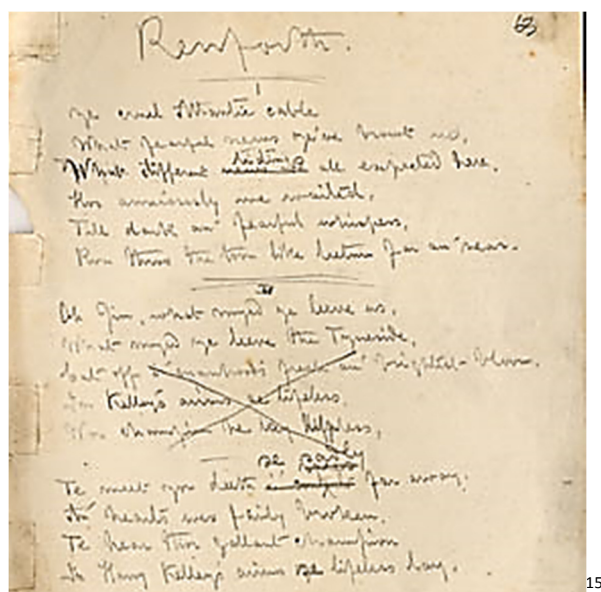 63
Renforth.
I
Ye cruel Atlantic cable
What fearful news ye've browt us,
What different tidings all expected here,
Hoo anxiously we waited,
Till doubt an' fearful whispers,
Run throo the toon like leetnin far an' near.
II
Oh Jim, what myed ye leeve us,
What myed ye leeve the Tyneside,
Cut off i' manhood's pride an' brightest bloom,
In Kelley's airms se lifeless,
Wor champion he lay helpless,
se sairly
Te meet yor deeth far away;
Wor hearts was fairly broken,
Te hear thor gallant champion
In Harry Kelley's airms se lifeless lay.
15